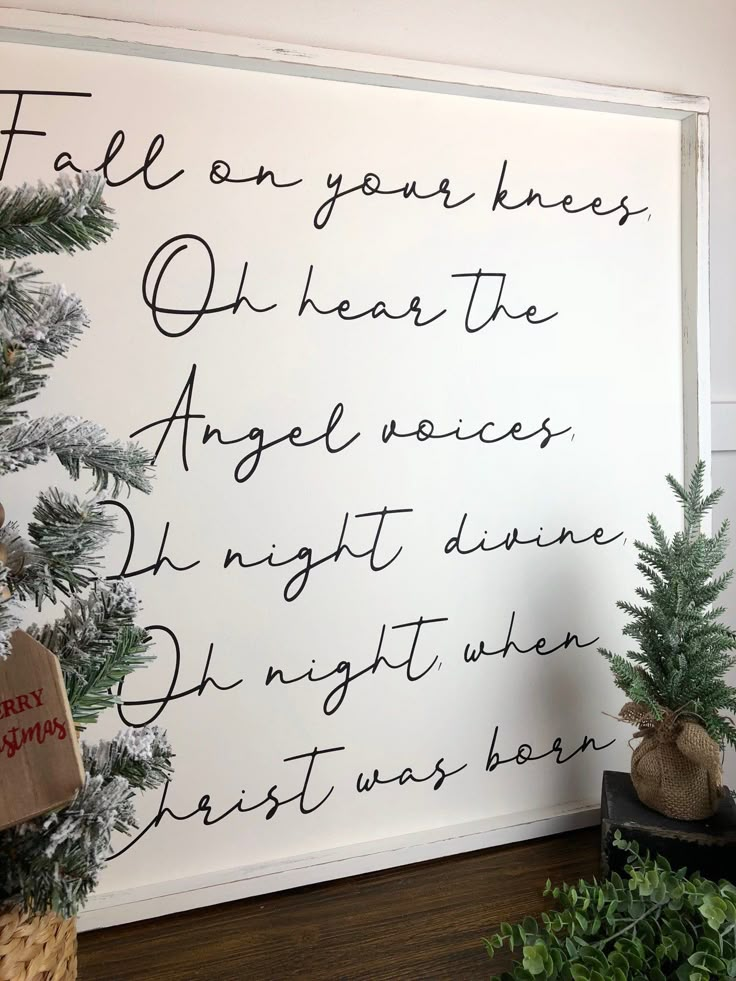 Fall on your knees,
Oh hear the
Angel voices,
Oh night divine,
Oh night, when
Christ was born
RRY
stmas